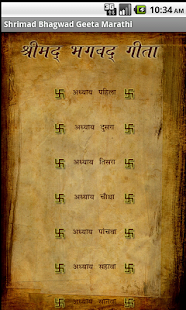 3G 10:34 AM
Shrimad Bhagwad Geeta Marathi
श्रीमद् भगवद् गीता
अध्याय पहिला
अध्याय दुसरा
अध्याय तिसरा
अध्याय चौथा
अध्याय पांचवा
अध्याय सहावा
अध्याय सातवा